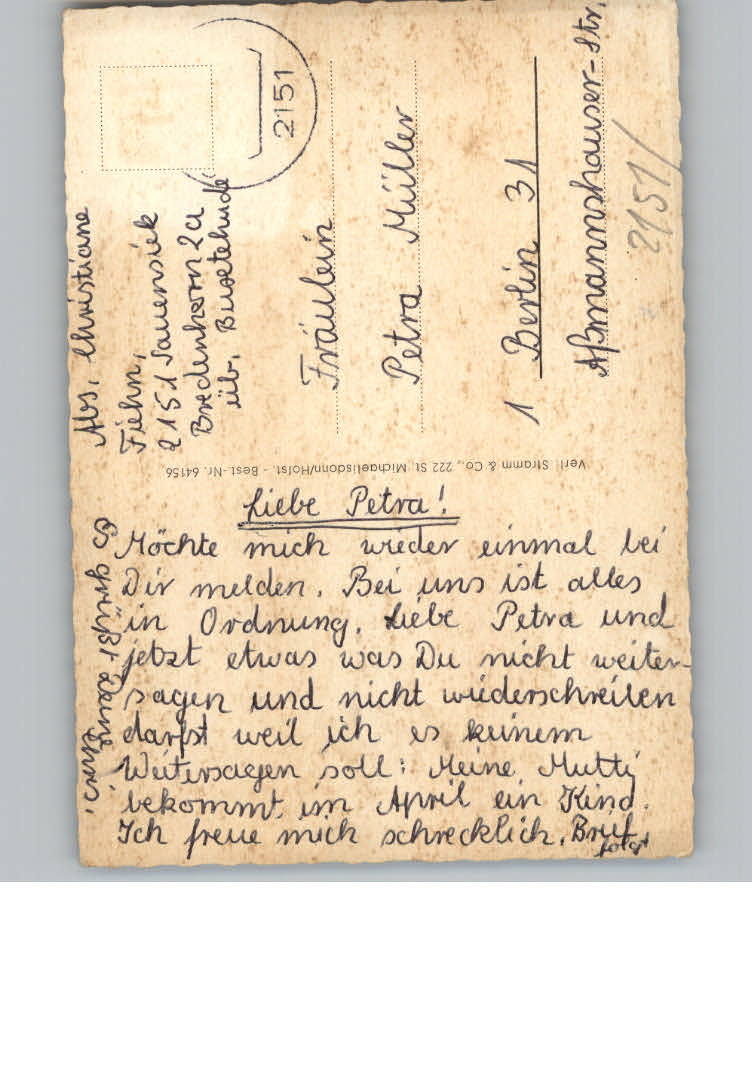 Liebe Petra!
Möchte mich wieder einmal bei
Dir melden. Bei uns ist alles
in Ordnung. Liebe Petra und
jetzt etwas was Du nicht weiter-
sagen und nicht wiederschreiben
darfst weil ich es keinem
Weitersagen soll: Meine Mutti
bekommt im April ein Kind.
Ich freue mich schrecklich. Brief
folgt
Es grüßt Deine
Verl. Stramm & Co., 222 St. Michaelisdonn/Holst - Best-Nr. 64156
Abs. Christiane
Fiehn,
2151 Sauensiek
Bredenhorn 2a
üb. Buxtehude
2151
Fräulein
Petra Müller
1 Berlin 31
Aßmannshauser-Str.
2151/